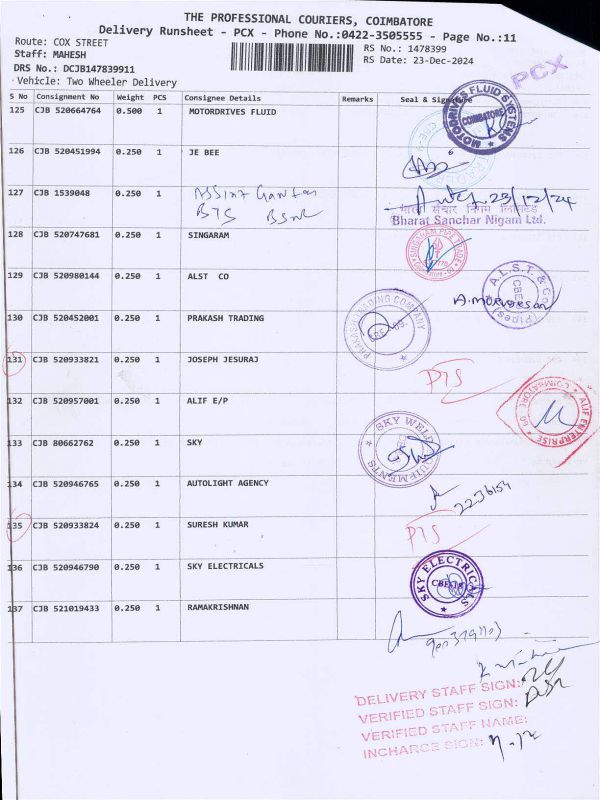 THE PROFESSIONAL COURIERS, COIMBATORE
Delivery Runsheet - PCX - Phone No.:0422-3505555 - Page No.:11
Route: COX STREET
RS No.: 1478399
Staff: MAHESH
RS Date: 23-Dec-2024
DRS No.: DCJB147839911
Vehicle: Two Wheeler Delivery
PCX
S No Consignment No Weight PCS Consignee Details Remarks Seal & Signature
125 CJB 520664764 0.500 1 MOTORDRIVES FLUID
MOTORDRIVES FLUID SYSTEMS
COIMBATORE
126 CJB 520451994 0.250 1 JE BEE
127 CJB 1539048 0.250 1
BTS BSNL
23/12/24
भारत संचार निगम लिमिटेड
Bharat Sanchar Nigam Ltd.
128 CJB 520747681 0.250 1 SINGARAM
SINGARAM PIPE TRADE
129 CJB 520980144 0.250 1 ALST CO
A.L.S.T. & Co
CBE
Pipes
130 CJB 520452001 0.250 1 PRAKASH TRADING
PRAKASH TRADING COMPANY
131 CJB 520933821 0.250 1 JOSEPH JESURAJ
PTS
132 CJB 520957001 0.250 1 ALIF E/P
ALIF ENTERPRISE
COIMBATORE
133 CJB 80662762 0.250 1 SKY
SKY WELD
134 CJB 520946765 0.250 1 AUTOLIGHT AGENCY
135 CJB 520933824 0.250 1 SURESH KUMAR
PTS
136 CJB 520946790 0.250 1 SKY ELECTRICALS
SKY ELECTRICALS
137 CJB 521019433 0.250 1 RAMAKRISHNAN
DELIVERY STAFF SIGN:
VERIFIED STAFF SIGN:
VERIFIED STAFF NAME:
INCHARGE SIGN: